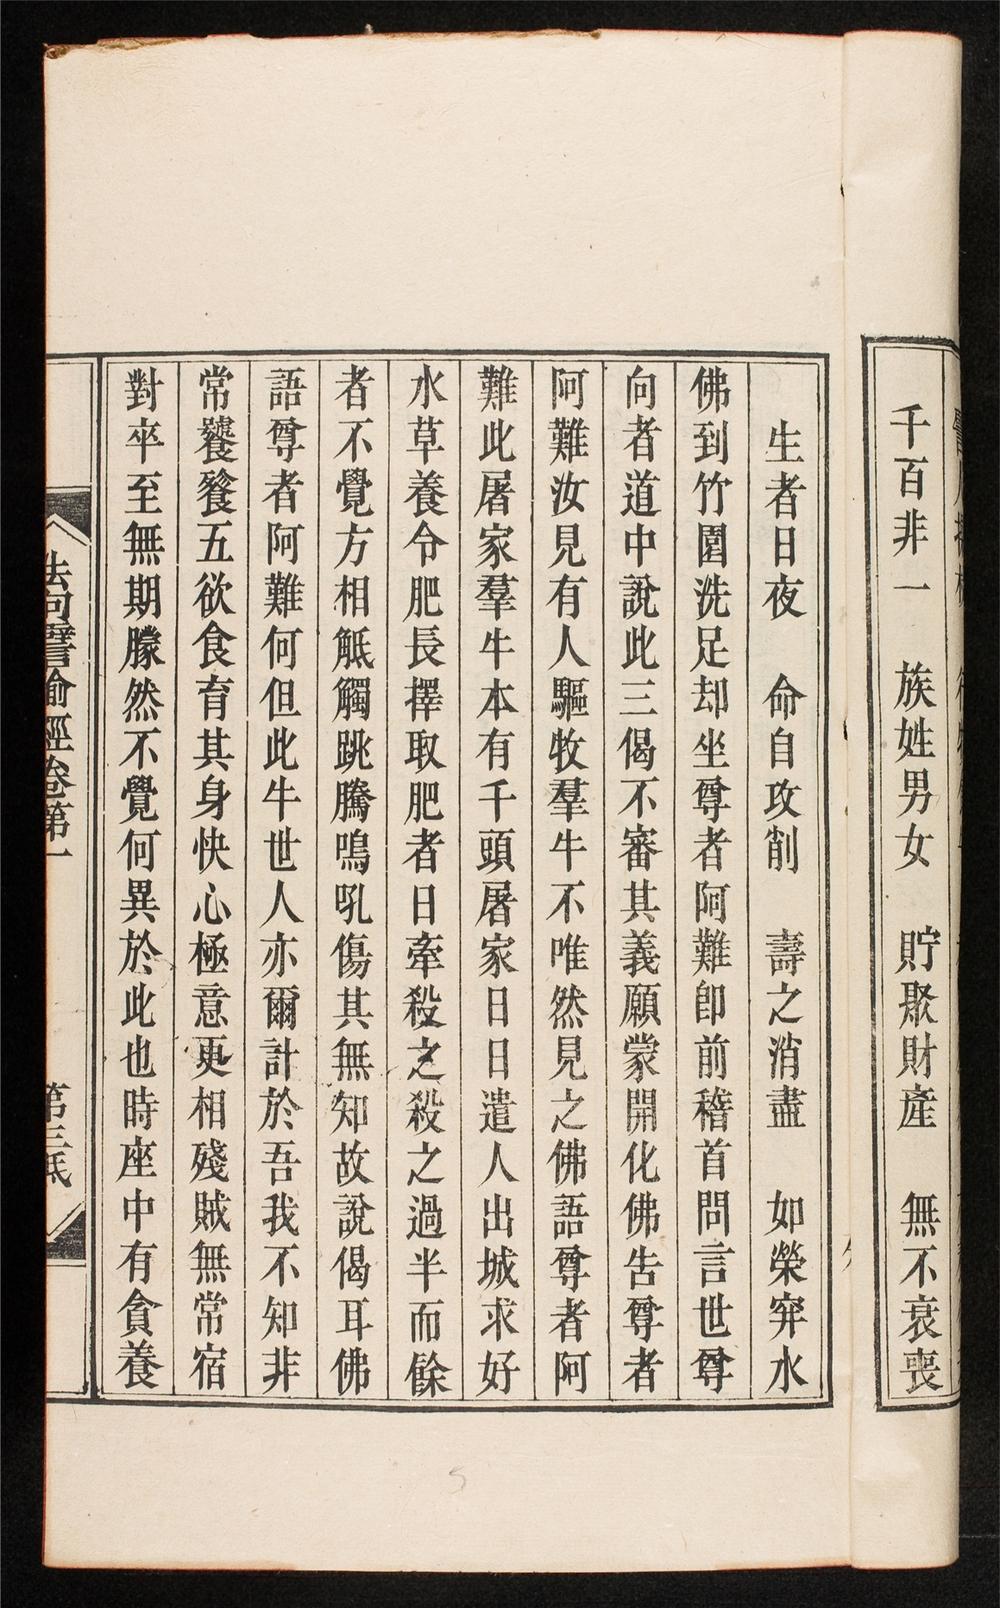 千百非一　族姓男女　貯聚財產　無不衰喪
生者日夜　命自攻削　壽之消盡　如榮穽水
佛到竹園洗足却坐尊者阿難卽前稽首問言世尊
向者道中說此三偈不審其義願蒙開化佛告尊者
阿難汝見有人驅牧羣牛不唯然見之佛語尊者阿
難此屠家羣牛本有千頭屠家日日遣人出城求好
水草養令肥長擇取肥者日牽殺之殺之過半而餘
者不覺方相觝觸跳騰鳴吼傷其無知故說偈耳佛
語尊者阿難何但此牛世人亦爾計於吾我不知非
常饕餮五欲食育其身快心極意更相殘賊無常宿
對卒至無期朦然不覺何異於此也時座中有貪養
法句譬喻經卷第一
第三紙
5